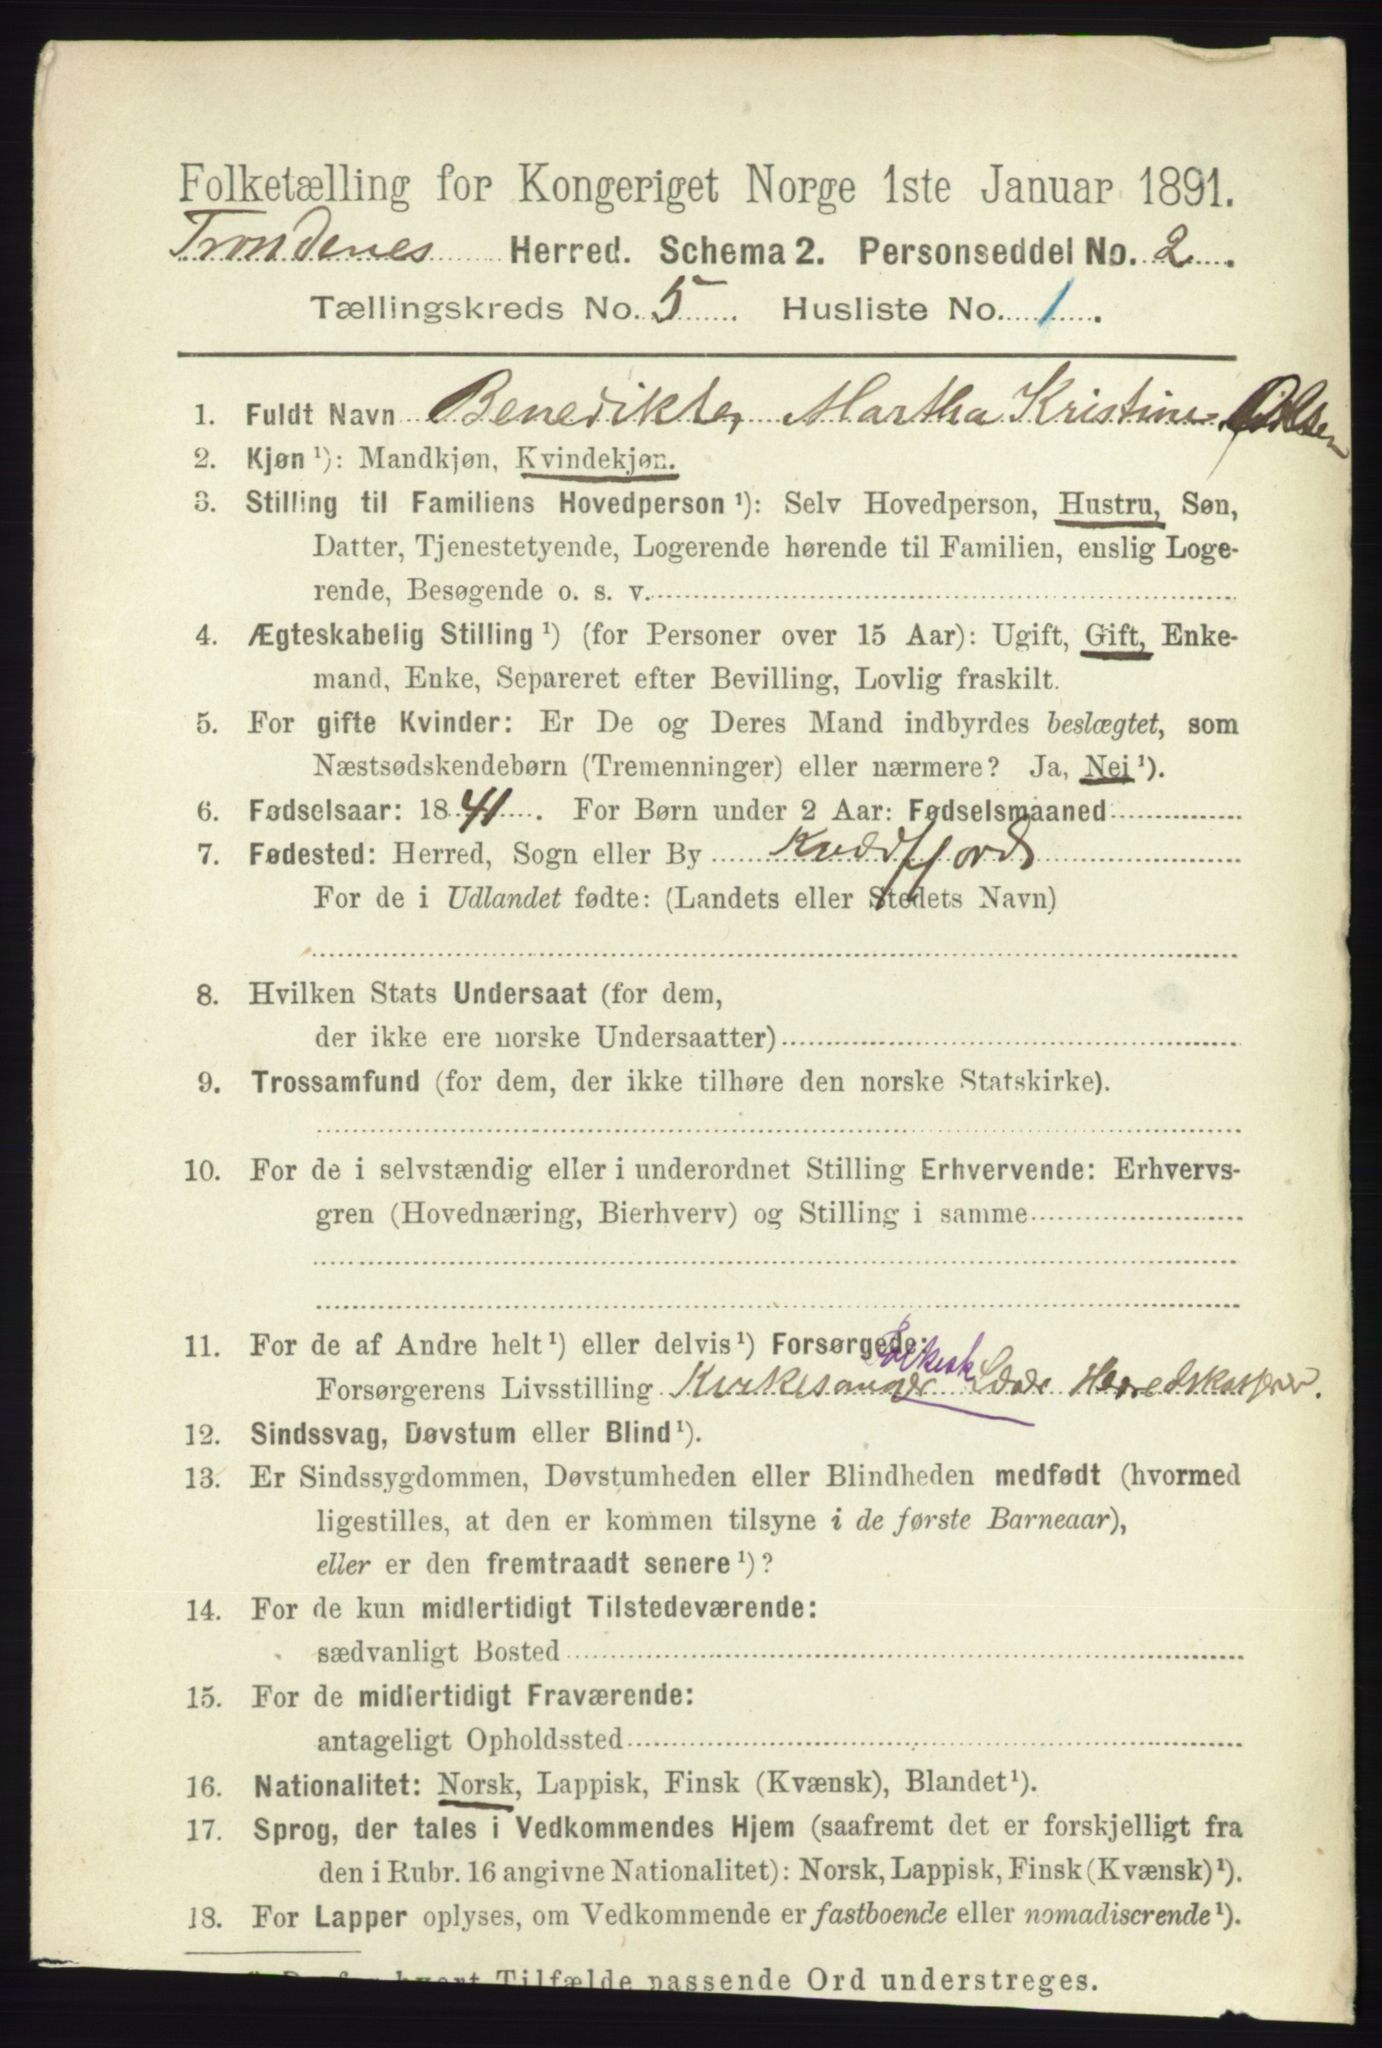 Folketælling for Kongeriget Norge 1ste Januar 1891.
Trondenes Herred. Schema 2. Personseddel No. 2
Tællingskreds No. 5 Husliste No. 1.
1. Fuldt Navn Benedikte, Martha Kristine Olsen
2. Kjøn ¹): Mandkjøn, Kvindekjøn.
3. Stilling til Familiens Hovedperson ¹): Selv Hovedperson, Hustru, Søn,
Datter, Tjenestetyende, Logerende hørende til Familien, enslig Loge-
rende, Besøgende o. s. v.
4. Ægteskabelig Stilling ¹) (for Personer over 15 Aar): Ugift, Gift, Enke-
mand, Enke, Separeret efter Bevilling, Lovlig fraskilt.
5. For gifte Kvinder: Er De og Deres Mand indbyrdes beslægtet, som
Næstsødskendebørn (Tremenninger) eller nærmere? Ja, Nei ¹).
6. Fødselsaar: 1841. For Børn under 2 Aar: Fødselsmaaned
7. Fødested: Herred, Sogn eller By Kvædfjord
For de i Udlandet fødte: (Landets eller Stedets Navn)
8. Hvilken Stats Undersaat (for dem,
der ikke ere norske Undersaatter)
9. Trossamfund (for dem, der ikke tilhøre den norske Statskirke).
10. For de i selvstændig eller i underordnet Stilling Erhvervende: Erhvervs-
gren (Hovednæring, Bierhverv) og Stilling i samme
11. For de af Andre helt ¹) eller delvis ¹) Forsørgede:
Folkesk
Forsørgerens Livsstilling Kirkesanger Lærer Herredskasserer.
12. Sindssvag, Døvstum eller Blind ¹).
13. Er Sindssygdommen, Døvstumheden eller Blindheden medfødt (hvormed
ligestilles, at den er kommen tilsyne i de første Barneaar),
eller er den fremtraadt senere ¹)?
14. For de kun midlertidigt Tilstedeværende:
sædvanligt Bosted
15. For de midlertidigt Fraværende:
antageligt Opholdssted
16. Nationalitet: Norsk, Lappisk, Finsk (Kvænsk), Blandet ¹).
17. Sprog, der tales i Vedkommendes Hjem (saafremt det er forskjelligt fra
den i Rubr. 16 angivne Nationalitet): Norsk, Lappisk, Finsk (Kvænsk) ¹).
18. For Lapper oplyses, om Vedkommende er fastboende eller nomadiserende ¹).
hvert Tilfælde passende Ord understreges.